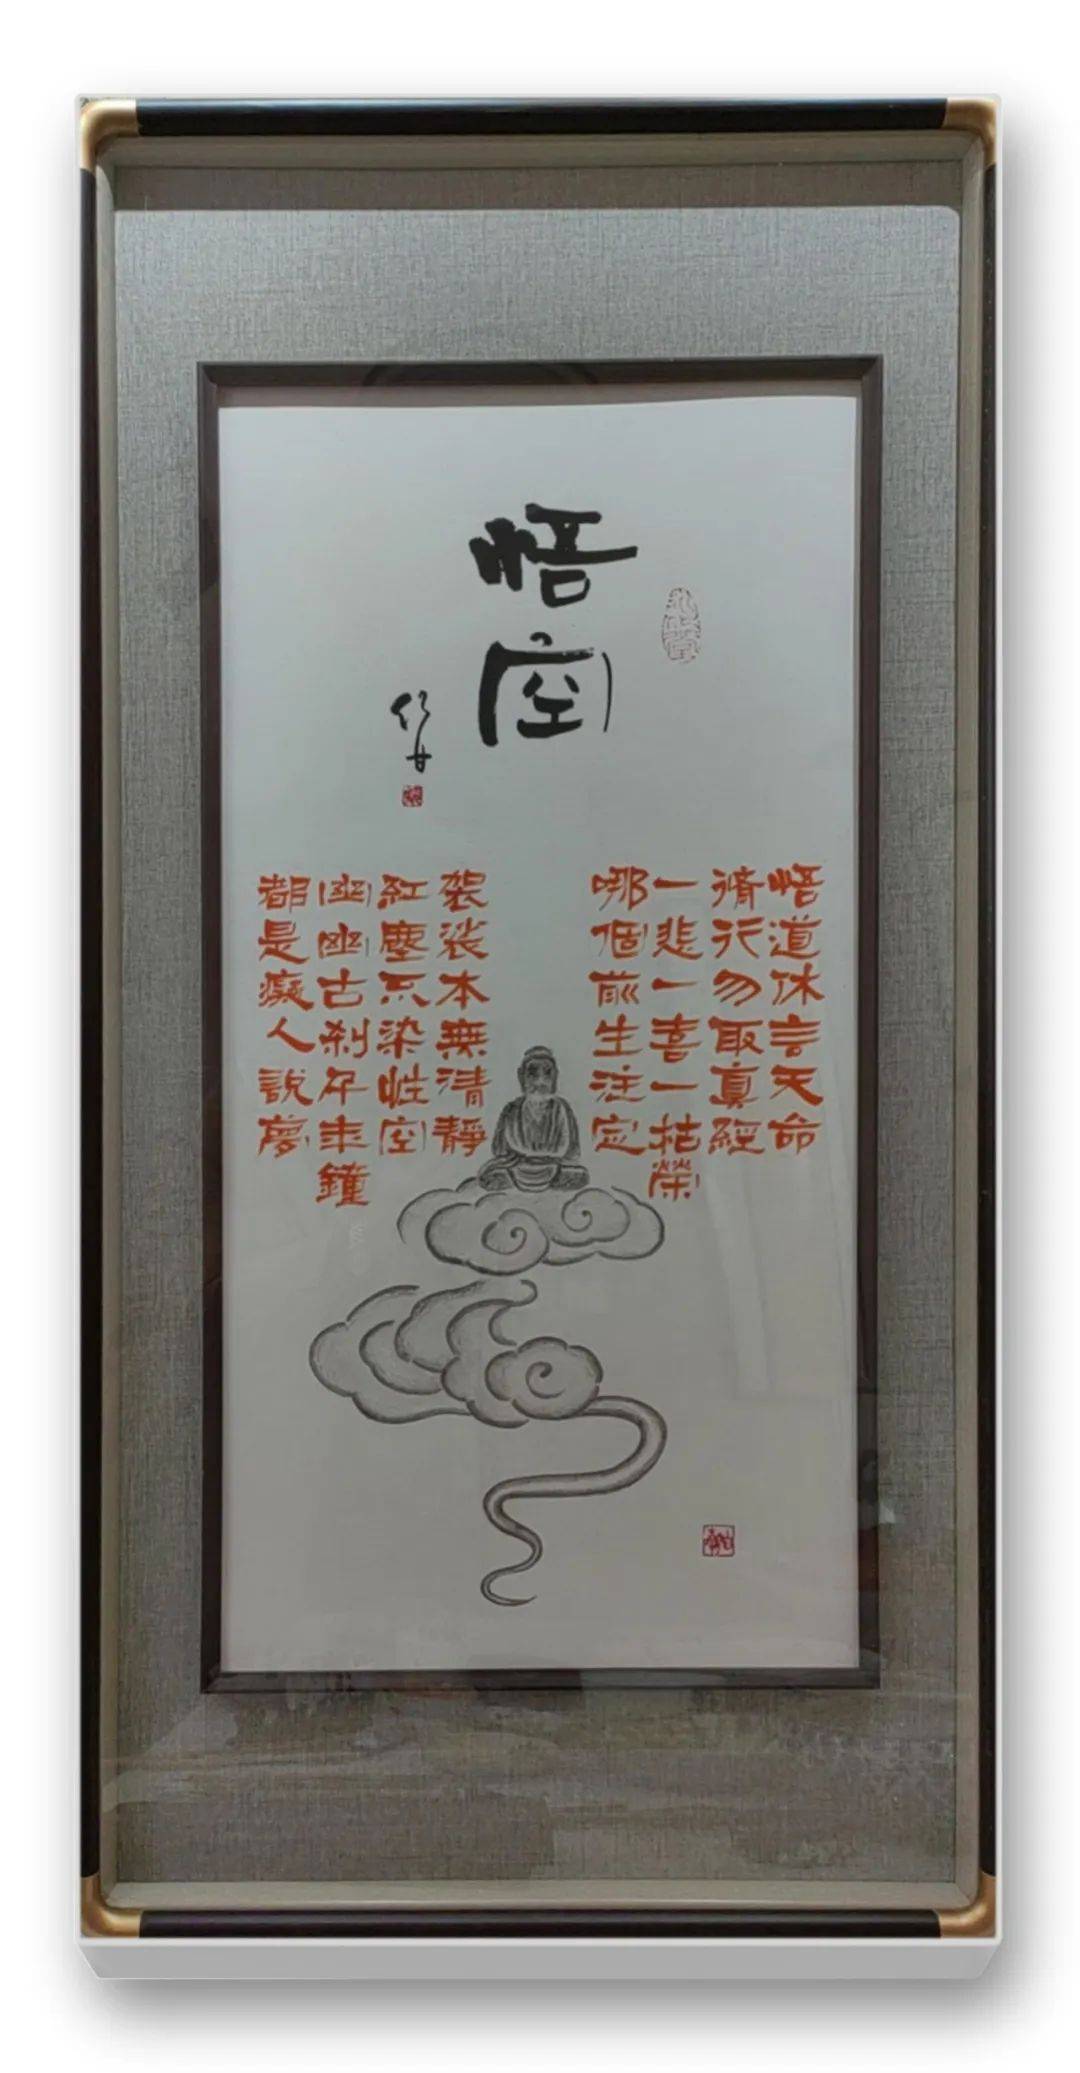 悟空
悟道休言天命
脩行勿取真經
一悲一喜一枯榮
哪個前生注定
袈裟本無清靜
紅塵不染性空
幽幽古刹千年鐘
都是癡人說夢